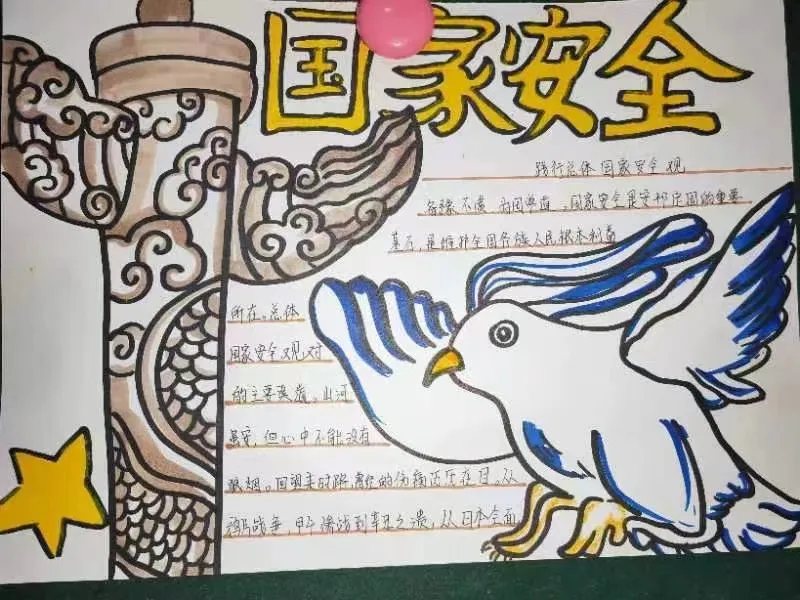 国家安全
践行总体国家安全观
备豫不虞,为国常道。国家安全是安邦定国的重要
基石,是维护全国各族人民根本利益
所在。总体
国家安全观,对
的主要
山河
虽安,但心中不能没有
狼烟。回望来时路,的伤痛历历在目。从
鸦片战争,甲午海战到辛丑之,从日本全面